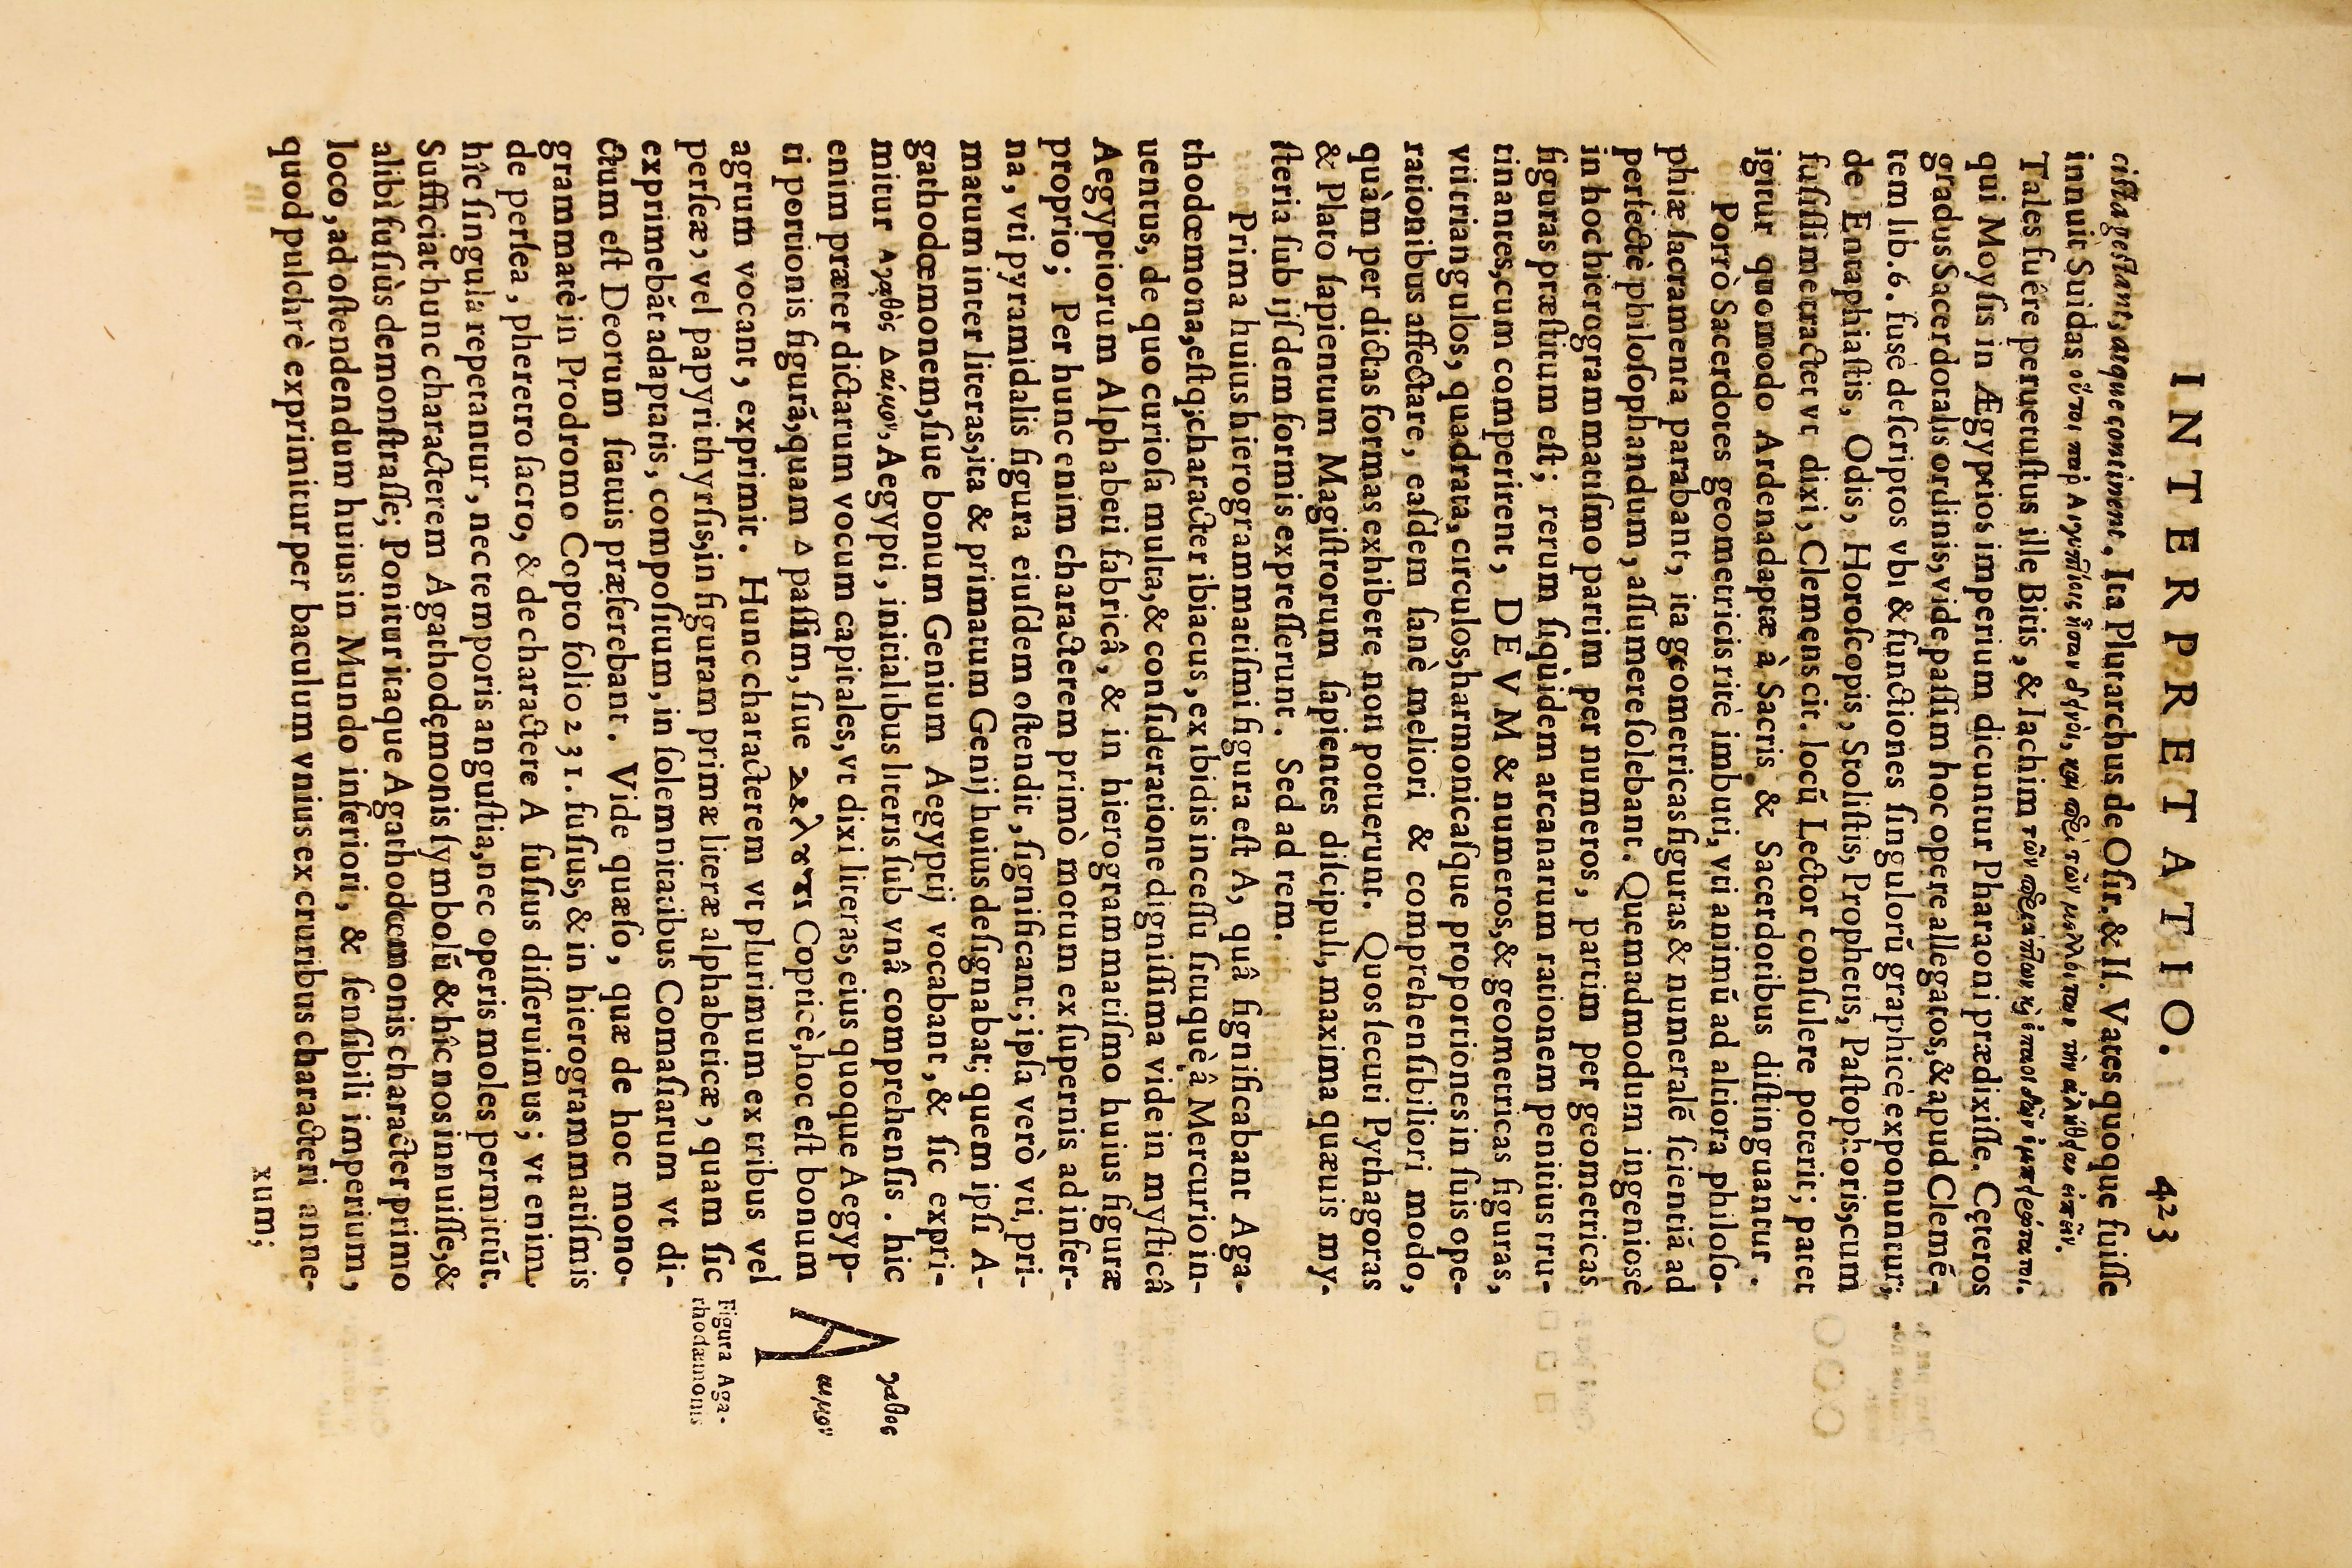 INTERPRETATIO. 423
ciſta geſtant, atque continent. Ita Plutarchus de Oſir. & Iſ. Vates quoque fuiſſe
innuit Suidas οὗτοι παρ' Αιγυπίοις ἦσαν
Tales fuêre peruetuſtus ille Bitis, & Iachim τῶν
qui Moyſis in Ægyptios imperium dicuntur Pharaoni prædixiſſe. Cęteros
gradus Sacerdotalis ordinis, vide paſſim hoc opere allegatos, & apud Clemē-
tem lib. 6. fuſe deſcriptos vbi & functiones ſingulorū graphicè exponuntur;
de Entaphiaſtis, Odis, Horoſcopis, Stoliſtis, Prophetis, Paſtophoris, cum
fuſiſſimè tractet vt dixi, Clemens cit. locū Lector conſulere poterit; patet
igitur quomodo Ardenadaptæ à Sacris & Sacerdotibus diſtinguantur.
Porrò Sacerdotes geometricis ritè imbuti, vti animū ad altiora philoſo-
phiæ ſacramenta parabant, ita geometricas figuras & numeralē ſcientiā ad
perfectè philoſophandum, aſſumere ſolebant. Quemadmodum ingenioſè
in hoc hierogrammatiſmo partim per numeros, partim per geometricas
figuras præſtitum eſt; rerum ſiquidem arcanarum rationem penitius tru-
tinantes, cum comperirent, DEVM & numeros, & geometricas figuras,
vti triangulos, quadrata, circulos, harmonicaſque proportiones in ſuis ope-
rationibus affectare, eaſdem ſanè meliori & comprehenſibiliori modo,
quàm per dictas formas exhibere non potuerunt. Quos ſecuti Pythagoras
& Plato ſapientum Magiſtrorum ſapientes diſcipuli, maxima quæuis my-
ſteria ſub ijſdem formis expreſſerunt. Sed ad rem.
Prima huius hierogrammatiſmi figura eſt A, quâ ſignificabant Aga-
thodœmona, eſtq; character ibiacus, ex ibidis inceſſu ſituquè â Mercurio in-
uentus, de quo curioſa multa, & conſideratione digniſſima vide in myſticâ
Aegyptiorum Alphabeti fabricâ, & in hierogrammatiſmo huius figuræ
proprio; Per hunc enim characterem primò motum ex ſupernis ad infer-
na, vti pyramidalis figura eiuſdem oſtendit, ſignificant; ipſa verò vti pri-
matum inter literas, ita & primatum Genij huius deſignabat; quem ipſi A-
gathodœmonem, ſiue bonum Genium Aegyptij vocabant, & ſic expri-
mitur Αγαθὸς Δαίμον, Aegypti, initialibus literis ſub vnâ comprehenſis. hic
enim præter dictarum vocum capitales, vt dixi literas, eius quoque Aegyp-
ti portionis figurā, quam Δ paſſim, ſiue Copticè, hoc eſt bonum
agrum vocant, exprimit. Hunc characterem vt plurimum ex tribus vel
perſeæ, vel papyri thyrſis, in figuram primæ literæ alphabeticæ, quam ſic
exprimebāt adaptatis, compoſitum, in ſolemnitatibus Comaſiarum vt di-
ctum eſt Deorum ſtatuis præferebant. Vide quæſo, quæ de hoc mono-
grammatè in Prodromo Copto folio 231. fuſius, & in hierogrammatiſmis
de perſea, pheretro ſacro, & de charactere A fuſius diſſeruimus; vt enim
hîc ſingula repetantur, nec temporis anguſtia, nec operis moles permittūt.
Sufficiat hunc characterem Agathodęmonis ſymbolū & hîc nos innuiſſe, &
alibi fuſiùs demonſtraſſe; Ponitur itaque Agathodœmonis character primo
loco, ad oſtendendum huius in Mundo inferiori, & ſenſibili imperium,
quod pulchrè exprimitur per baculum vnius ex cruribus characteri anne-
xum;
γαθος
A
αιμον
Figura Aga-
thodæmonis